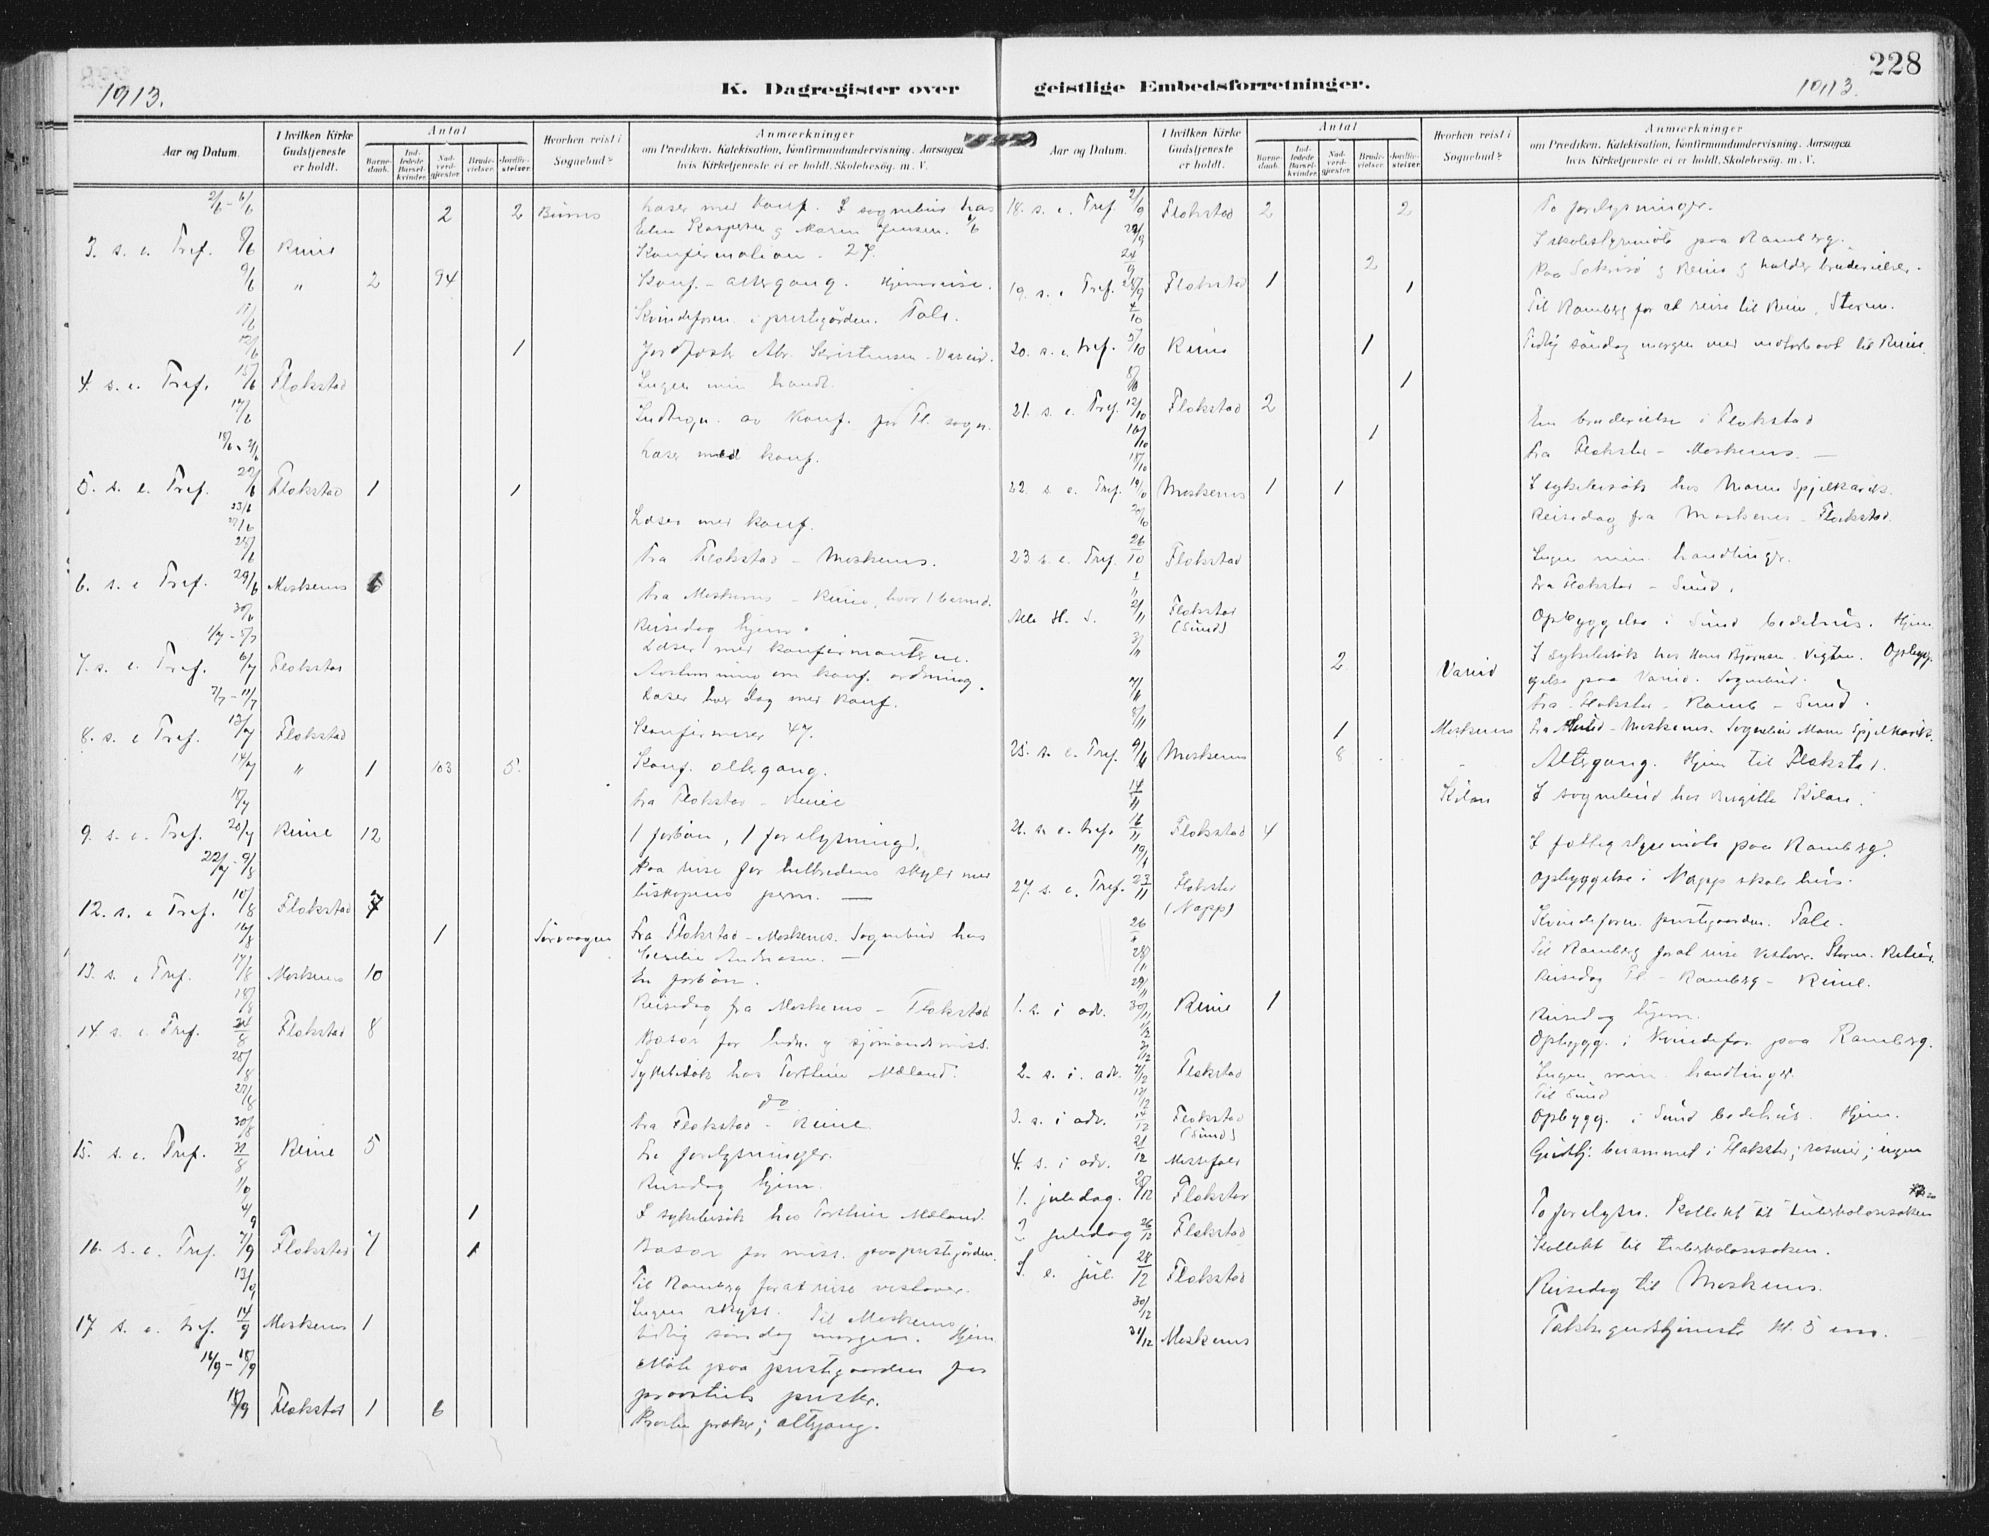 1913.
K. Dagregister over
Aar og Datum.
I hvilken Kirke Gudstjeneste er holdt.
Antal
Barnedaab.
Indledede Barselkvinder.
Nadverdgjester.
Brudevielser.
Jordfæstelser.
Hvorhen reist i Sognebud?
Anmærkninger
om Prædiken, Katekisation, Konfirmandundervisning, Aarsagen
hvis Kirketjeneste ei er holdt, Skolebesøg, m. V.
2/6 - 6/6 2 2 Læser med konf. I sognebud hos
Elen Kaspersen g Maren Jensen. 6/6
3. s. e. Tref. 8/6 Reine Konfirmation. 27.
9/6 " 2 94 Konf. - altergang. Hjemreise.
11/6 Kvindeforen. i prestegården. Tale.
12/6 1 Jordfæster Abr. Kristensen - Vareid.
4. s. e. Tref. 15/6 Flakstad Ingen min. handl.
17/6 Indtegn. av konf. for Fl. sogn.
18/6 - 21/6 Læser med konf.
5. s. e. Tref. 22/6 Flakstad 1 1
23/6
27/6 Læser med konf.
28/6 Fra Flakstad - Moskenes.
6. s. e Tref. 29/6 Moskenes 6 Fra Moskenes - Reine, hvor 1 barned.
30/6 Reisedag hjem.
1/7 - 5/7 Læser med konfirmanterne.
7. s. e. Tref. 6/7 Flakstad Avstemning om konf. ordning.
7/7 - 11/7 Læser hver dag med konf.
8. s. e Tref. 13/7 Flakstad Konfirmerer 47.
14/7 " 1 103 5. Konf. altergang.
18/7 Fra Flakstad - Reine
9. s. e. Tref. 20/7 Reine 12 1 forbøn, 1 forelysning.
22/7 - 9/8 Paa reise for helbredens skyld med
biskopens perm. —
12. s. e Tref. 10/8 Flakstad 7
16/8 1 Sørvaagen Fra Flakstad - Moskenes. Sognebud hos
Andreasen. —
13. s. e Tref. 17/8 Moskenes 10 En forbøn.
18/8 Reisedag fra Moskenes - Flakstad
14 s. e. Tref. 24/8 Flakstad 8 Basar for indr. g sjømandsmiss.
25/8 Sykebesøk hos Torstein Mæland.
27/8 do
30/8 Fra Flakstad - Reine
15. s. e. Tref. 31/8 Reine 5 Tre forelysninger.
1/9 Reisedag hjem.
4/9 1 I sykebesøk hos Torstein Mæland.
16. s. e. Tref. 7/9 Flakstad 7 1 Basar for miss. paa prestegården.
13/9 Til Ramberg for at reise vestover.
Ingen skyss. Til Moskenes
17 s. e. tref. 14/9 Moskenes 1 tidlig søndag morgen. Hjem
16/9 - 18/9 Møte paa prestegaarden for
provstiets prester.
18/9 Flakstad 1 6 præker; altergang.
228
1913.
geistlige Embedsforretninger.
Aar og Datum.
I hvilken Kirke Gudstjeneste er holdt.
Antal
Barnedaab.
Indledede Barselkvinder.
Nadverdgjester.
Brudevielser.
Jordfæstelser.
Hvorhen reist i Sognebud?
Anmærkninger
om Prædiken, Katekisation, Konfirmandundervisning, Aarsagen
hvis Kirketjeneste ei er holdt, Skolebesøg, m. V.
18. s. e. Tref. 21/9 Flakstad 2 2 To forelysninger.
I skolestyremøte paa Ramberg.
2 Paa Sakrisø g Reine g holder brudevielser.
19. s. e Tref. 28/9 Flakstad 1 1
4/10 Til Ramberg for at reise til Reine. Storm.
20. s. e. tref. 5/10 Reine 1 Tidlig søndag morgen med motorbaat til Reine.
1
21. s. e. Tref. 12/10 Flakstad 2
16/10 1 En brudevielse i Flakstad
18/10 Fra Flakstad - Moskenes. —
22. s. e. Tref. 19/10 Moskenes 1 1 I sykebesøk hos Maren Spjelkavik.
20/10 Reisedag fra Moskenes - Flakstad.
23 s. e. Tref. 26/10 Flakstad Ingen min. handlinger.
1/11 Fra Flakstad - Sund.
Alle H. D. 2/11 Flakstad (Sund) Opbyggelse i Sund bedehus. Hjem
3/11 I sykebesøk hos Hans Bjørnsen. Vigten. Opbygg
2 Vareid gelse paa Vareid. Sognebud.
7/11 Fra Flakstad - Ramb - Sund.
8/11 1 Moskenes Fra Sund - Moskenes. Sognebud Maren Spjelkavik.
25. s. e. Tref. 9/11 Moskenes 8 Altergang. Hjem til Flakstad.
14/11 Kilan I sognebud hos Kilan.
26. s. e. tref. 16/11 Flakstad 4
19/11 I fattigstyremøte paa Ramberg.
27. s. e. Tref. 23/11 Flakstad (Napp) Opbyggelse i Napp skolehus.
26/11 Kvindeforen. prestegaarden. Tale.
28/11 Til Ramberg for at reise vestover. Storm.
29/11 Reisedag Fl - Ramberg - Reine.
1. s. i adv. 30/11 Reine 1
1/12 Reisedag hjem.
Opbygg. i Kvindefor. paa Ramberg.
2. s. i. adv. 7/12 Flakstad Ingen min. handlinger.
13/12 Til Sund
3. s. i adv. 14/12 Flakstad (Sund) Opbygg. i Sund bedehus. Hjem.
4. s. i adv. 21/12 Messefald Gudstj. berammet i Flakstad; ingen
1. juledag. 25/12 Flakstad To forelysn. Kollekt til tuberkulosesaken
2 juledag 26/12 Flakstad Kollekt til tuberkulosesaken.
S. e. jul. 28/12 Flakstad
30/12 Reisedag til Moskenes.
31/12 Moskenes Takkegudstjeneste kl. 5 em.